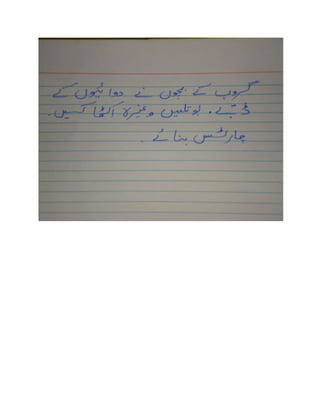 گروپ کے بچوں نے دوائیوں کے
ڈبے، بوتلیں وغیرہ اکٹھا کیں۔
چارٹس بنائے۔